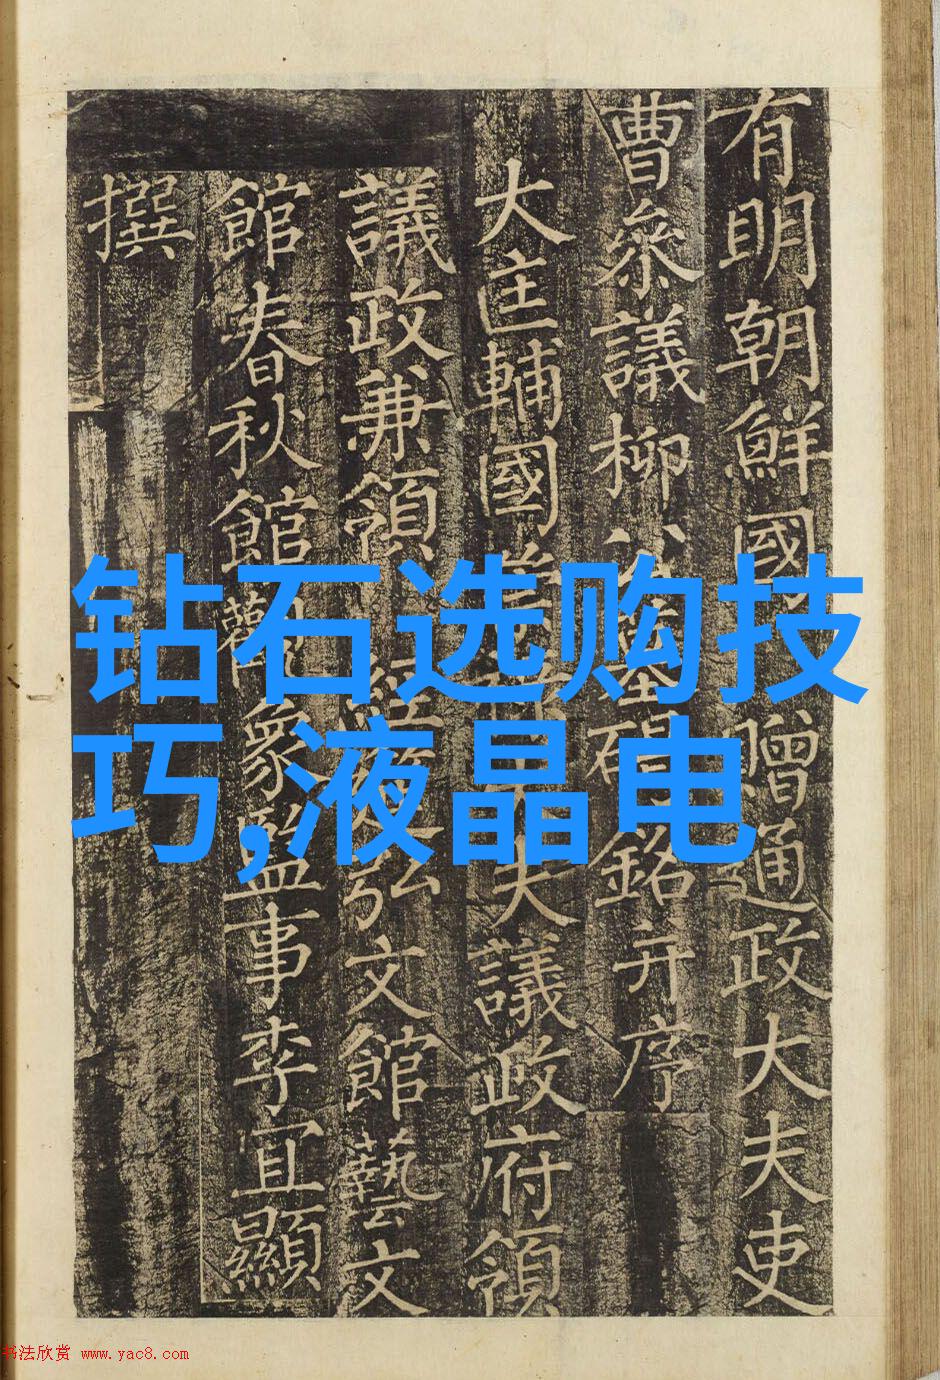 有明朝鮮國 贈通政大夫吏
曹叅議柳公墓碣銘并序
大匡輔國大夫議政府領
議政兼領經筵弘文館藝文
館春秋館觀象監事李宜顯
撰
钻石选购技
巧,液晶电
书法欣赏 www.yac8.com